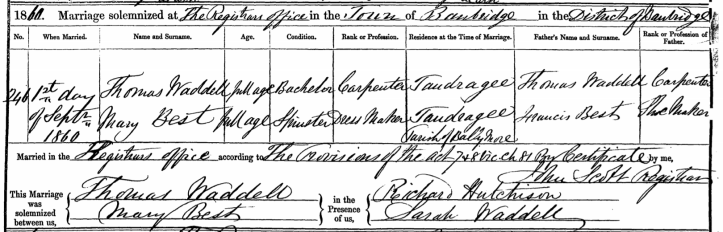 1860. Marriage solemnized at The Registrars office in the Town of Banbridge in the District of Banbridge
No. When Married. Name and Surname. Age. Condition. Rank or Profession. Residence at the Time of Marriage. Father's Name and Surname. Rank or Profession of Father.
246 1st day of Septr 1860 Thomas Waddell full age Bachelor Carpenter Tandragee Thomas Waddell Carpenter
Mary Best full age Spinster Dress Maker Tandragee Parish of Ballymore Francis Best Shoe Maker
Married in the Registrars office according to The Provisions of the act 7 & 8 Vic Ch 81 By Certificate by me,
John Scott Registrar
This Marriage was solemnized between us, Thomas Waddell Mary Best in the Presence of us, Richard Hutchison Sarah Waddell